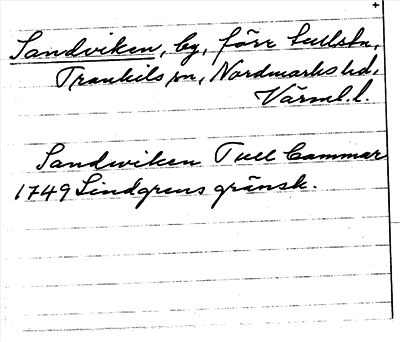 Sandviken, by, förr tullstn,
Trankils sn, Nordmarks hd,
Värml. l.
Sandwiken Tull Cammar
1749 Lindgrens gränsk.